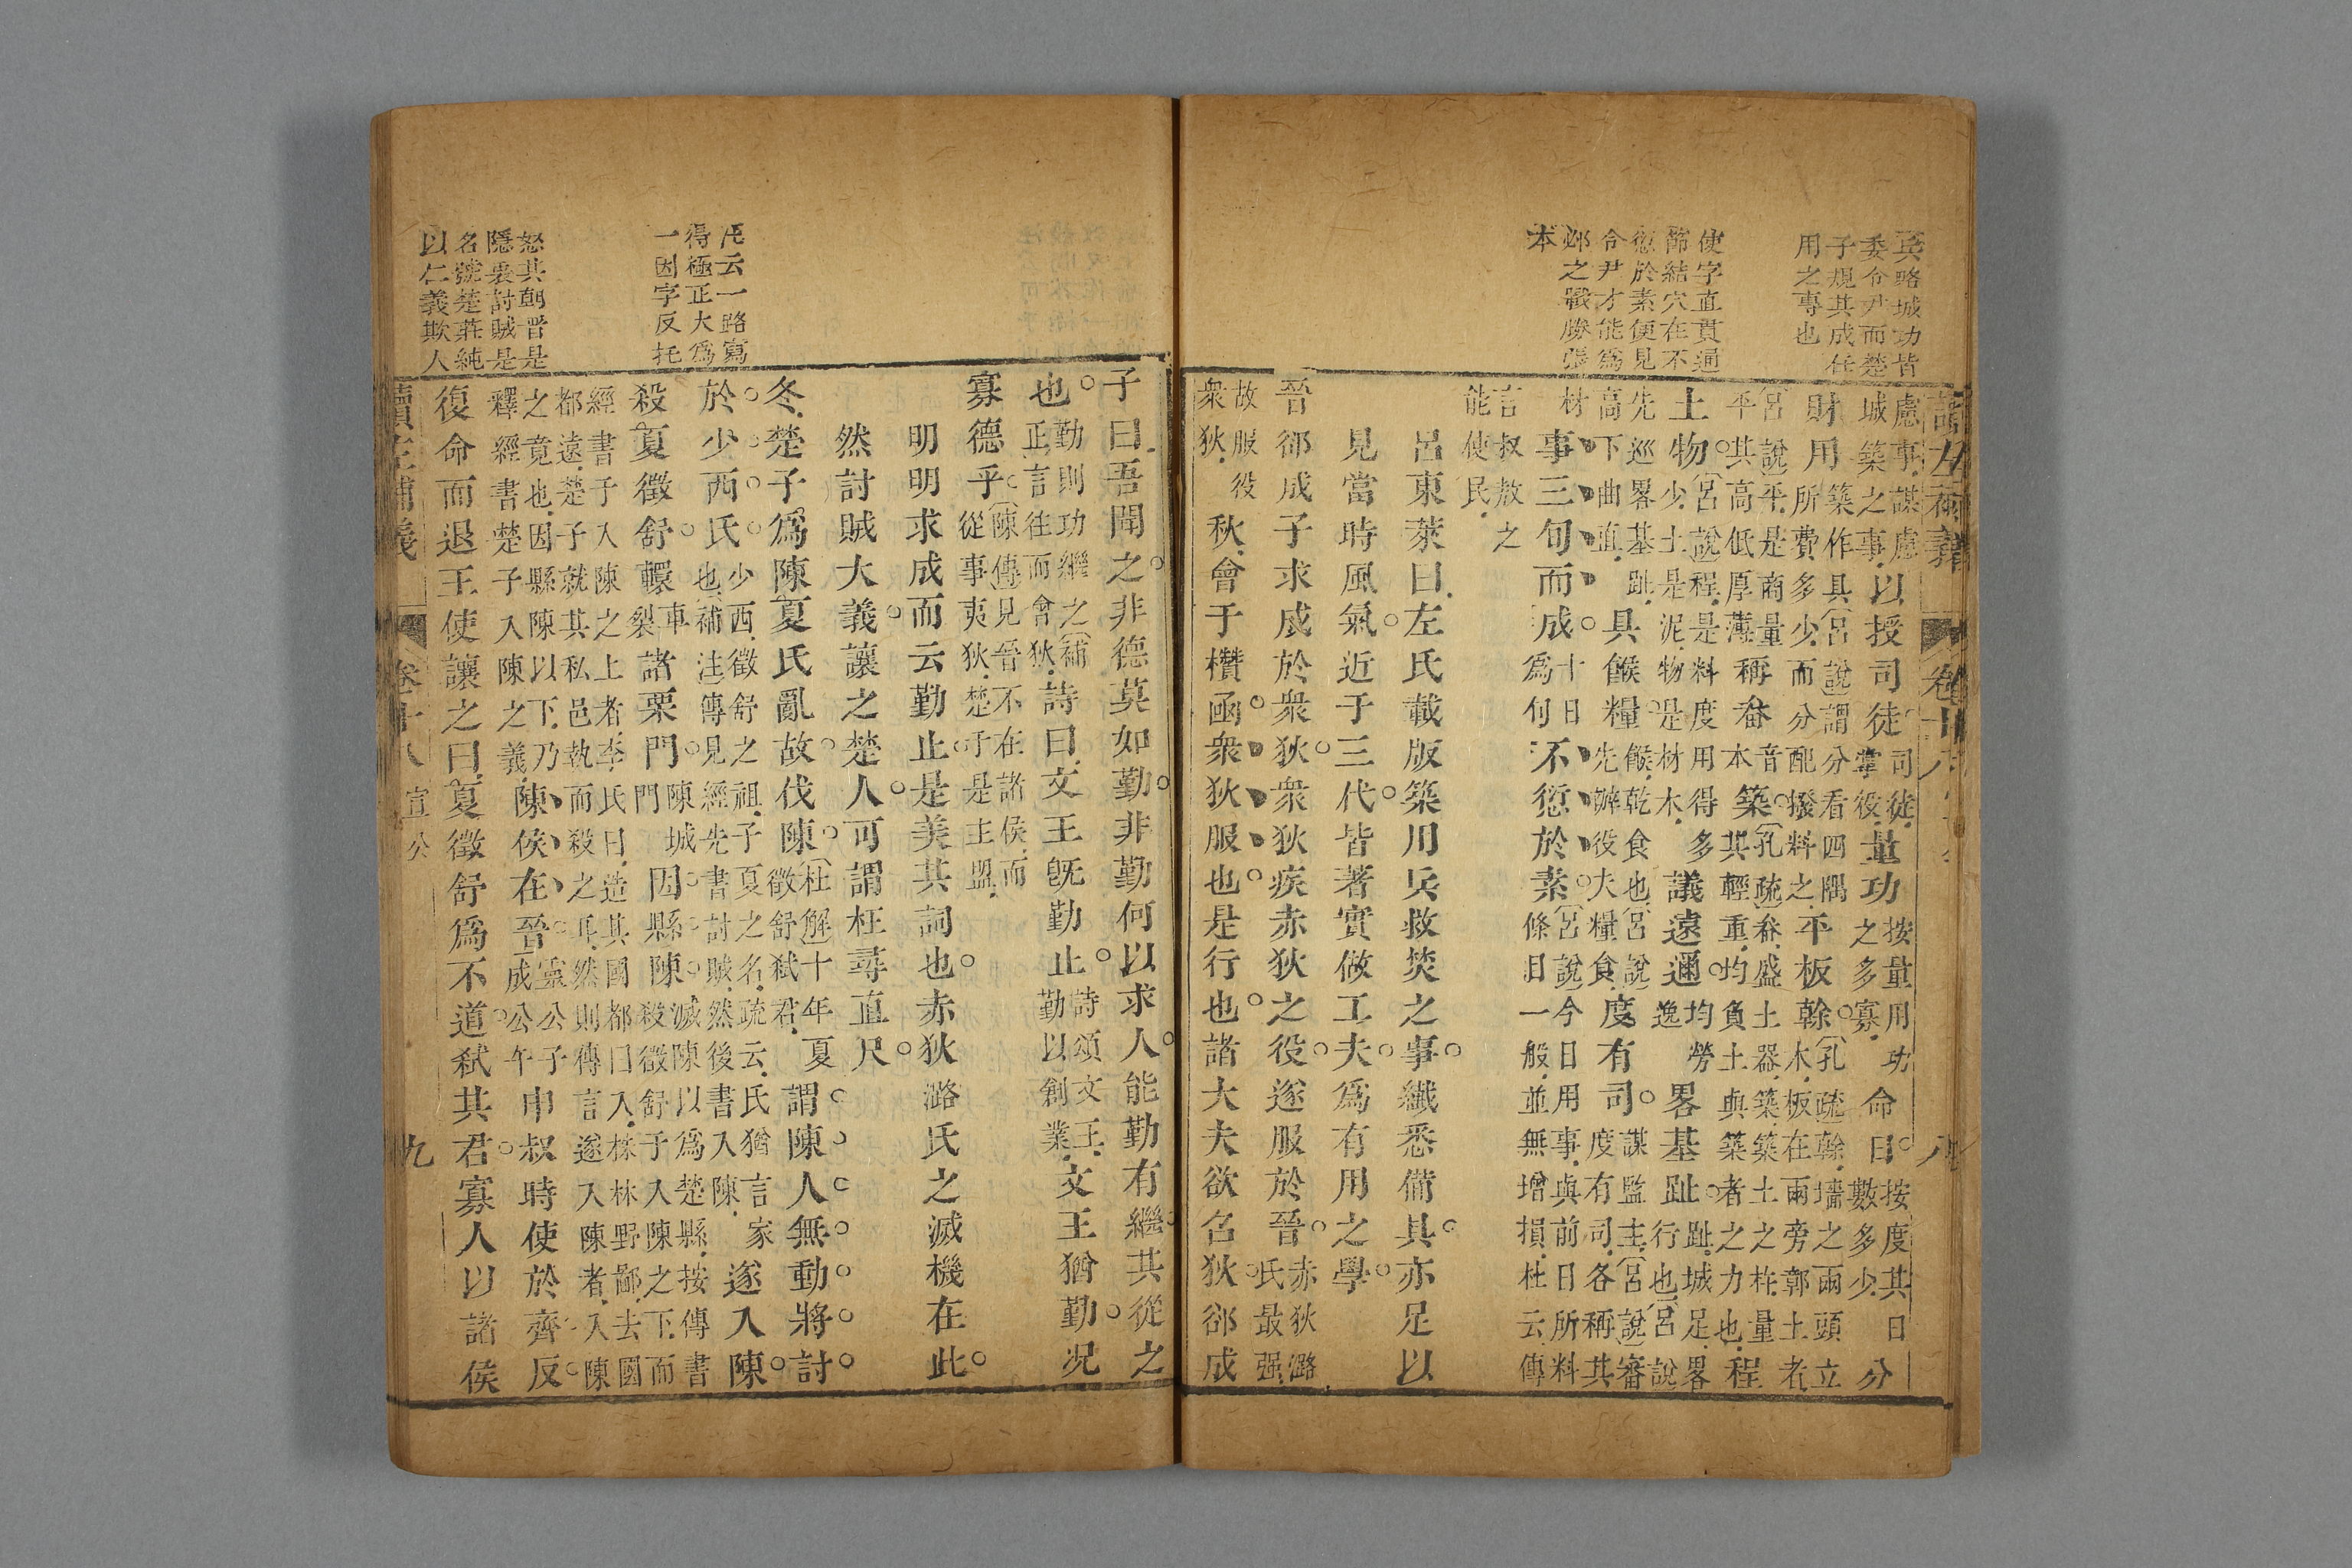 兵略城功皆
委令尹而楚
子規其成任
用之專也
使字直貫通
節結穴在不
愆於素便見
令尹才能為
邲之戰勝張
本
讀左補義 卷十八 八
慮事謀慮城築之事以授司徒司徒掌役量功按量用功之多寡命日按度其日數多少分
財用築作具宮說謂分看四隅所費多少而分配撥料之平板榦孔疏榦墻之兩頭立木板在兩旁鄣土者
平宮說平是商量其高低厚薄稱畚音本築孔疏畚盛土器築築土之杵量其輕重均負土與築者之力也程
土物宮說程是料度用得多少土是泥物是材木議遠邇均勞逸畧基趾趾城足畧行也宮說
先巡畧基趾高下曲直具餱糧餱乾食也宮說先辦役夫糧食度有司謀監主宮說審度有司各稱其
材事三旬而成十日為旬不愆於素宮說今日用事與前日所料條目一般並無增損杜云傳
言叔敖之能使民
呂東萊曰左氏載版築用兵救焚之事纖悉備具亦足以
見當時風氣近于三代皆著實做工夫為有用之學
晉郤成子求成於衆狄衆狄疾赤狄之役遂服於晉赤狄潞氏最强
故服役衆狄秋會于欑函衆狄服也是行也諸大夫欲召狄郤成
子曰吾聞之非德莫如勤非勤何以求人能勤有繼其從之
也勤則功繼之補正言往而會狄詩曰文王旣勤止詩頌文王勤以創業文王猶勤况
寡德乎陳傳見晉不在諸侯而從事夷狄楚子是主盟
明明求成而云勤止是美其詞也赤狄潞氏之滅機在此
然討賊大義讓之楚人可謂枉尋直尺
冬楚子為陳夏氏亂故伐陳杜解十年夏徵舒弑君謂陳人無動將討
於少西氏少西徵舒之祖子夏之名疏云氏猶言家也補注傳見經先書討賊然後書入陳遂入陳
殺夏徵舒轘車裂諸栗門陳城門因縣陳滅陳以為楚縣按傳書殺徵舒于入陳之下而
經書于入陳之上者李氏曰造其國都曰入林林野鄙去國都遠楚子就其私邑執而殺之耳然則傳言遂入陳者入陳
之竟也因縣陳以下乃釋經書楚子入陳之義陳侯在晉靈公子成公午申叔時使於齊反
復命而退王使讓之曰夏徵舒為不道弑其君寡人以諸侯
讀左補義 卷十八 宣公 九
凭云一路寫
得極正大為
一因字反托
怒其朝晉是
隱衷討賊是
名號楚莊純
以仁義欺人